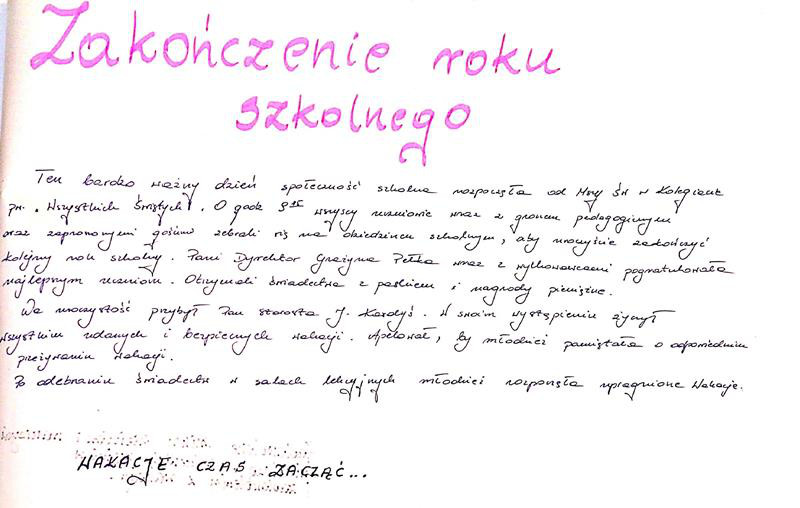 Zakończenie roku
szkolnego
Ten bardzo ważny dzień społeczność szkolna rozpoczęła od Mszy Św w Kolegiacie
pw. "Wszystkich Świętych". O godz 9¹⁵ wszyscy uczniowie wraz z gronem pedagogicznym
oraz zaproszonymi gośćmi zebrali się na dziedzińcu szkolnym, aby uroczyście zakończyć
kolejny rok szkolny. Pani Dyrektor Grażyna Pełka wraz z wychowawcami pogratulowała
najlepszym uczniom. Otrzymali świadectwa z paskiem i nagrody pieniężne.
Na uroczystość przybył Pan starosta J. Kardyś. W swoim wystąpieniu życzył
wszystkim udanych i bezpiecznych wakacji. Apelował, by młodzież pamiętała o odpowiednim
przeżywaniu wakacji.
Po odebraniu świadectw w salach lekcyjnych młodzież rozpoczęła upragnione wakacje.
WAKACJE CZAS ZACZĄĆ...